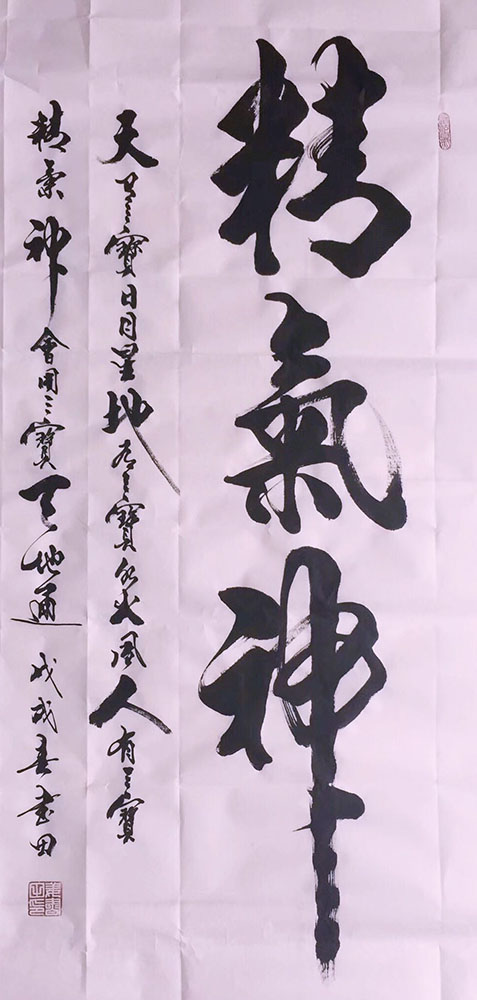 精氣神
天有三寶日月星地有三寶水火風人有三寶
精氣神會用三寶天地通 戊戌春書田